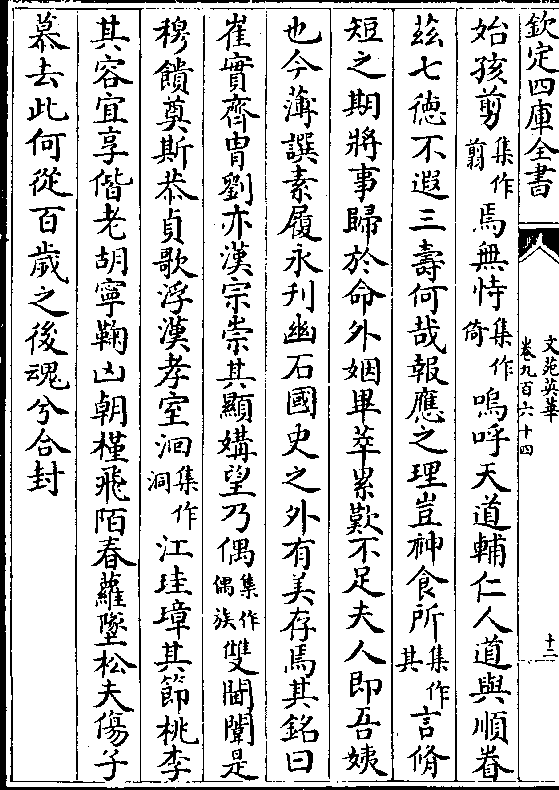 欽定四庫全書
文苑英華
卷九百六十四
十二
始孩剪集作翦焉無恃集作倚嗚呼天道輔仁人道與順眷
兹七徳不遐三壽何哉報應之理豈神食所集作其言脩
短之期將事歸於命外姻畢萃累歎不足夫人即吾姨
也今薄譔素履永刋幽石國史之外有美存焉其銘曰
崔實齊胄劉亦漢宗崇其顯媾望乃偶集作偶族雙閫闈是
穆饋奠斯恭貞歌浮漢孝室洄集作洞江珪璋其節桃李
其容宜享偕老胡寧鞠凶朝槿飛陌春蘿墜松夫傷子
慕去此何從百歲之後魂兮合封